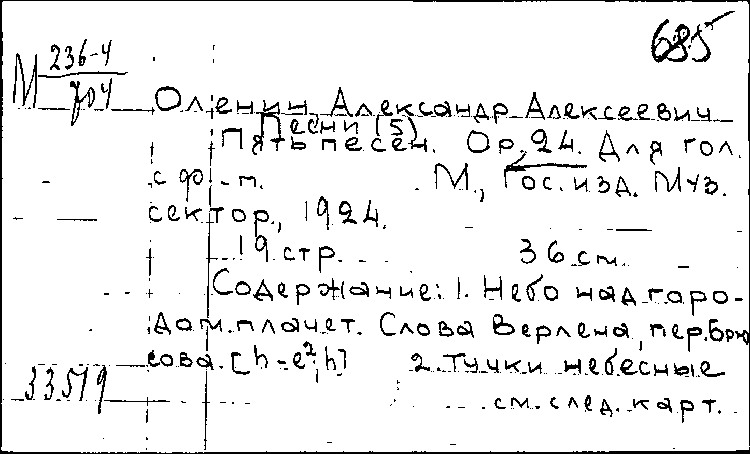 685
М 236-4
704
Оленин, Александр Алексеевич
Песни (5)
Пять песен. Op. 24. Для гол.
с ф.-п. М., Гос. изд. Муз.
сектор, 1924.
19 стр. 36 см.
Содержание: 1. Небо над горо-
дом плачет. Слова Верлена, пер. Брю
сова. [h-e²; h] 2. Тучки небесные
33519
см. след. карт.